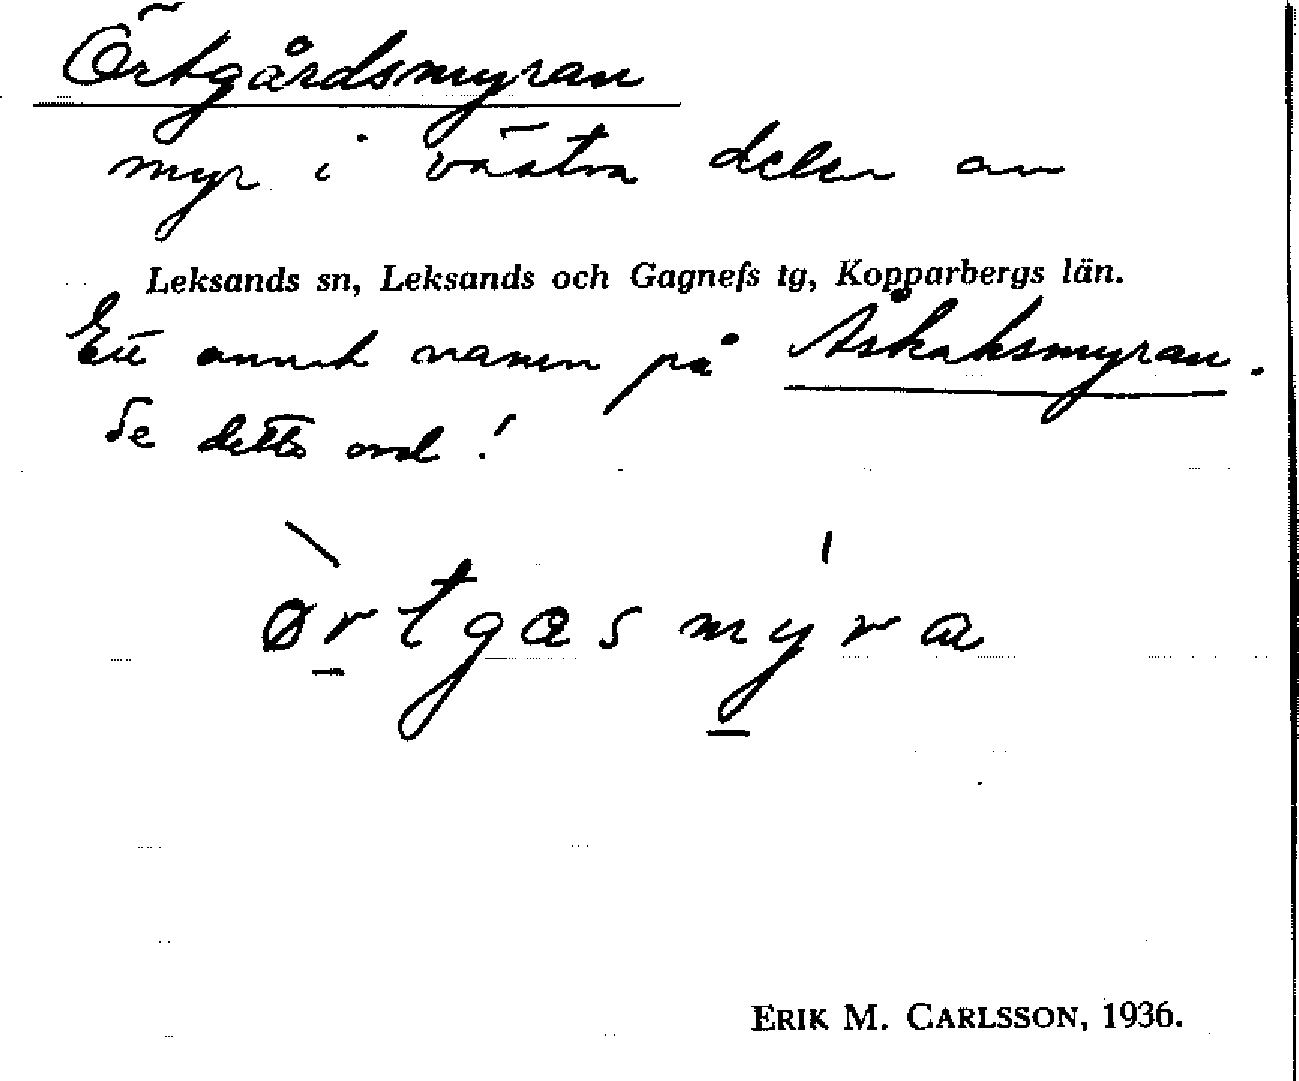 Örtgårdsmyran
myr i västra delen av
Leksands sn, Leksands och Gagnefs tg, Kopparbergs län.
Ett annat namn på Åskaksmyran.
Se detta ord!
ørtgasmyra
ERIK M. CARLSSON, 1936.